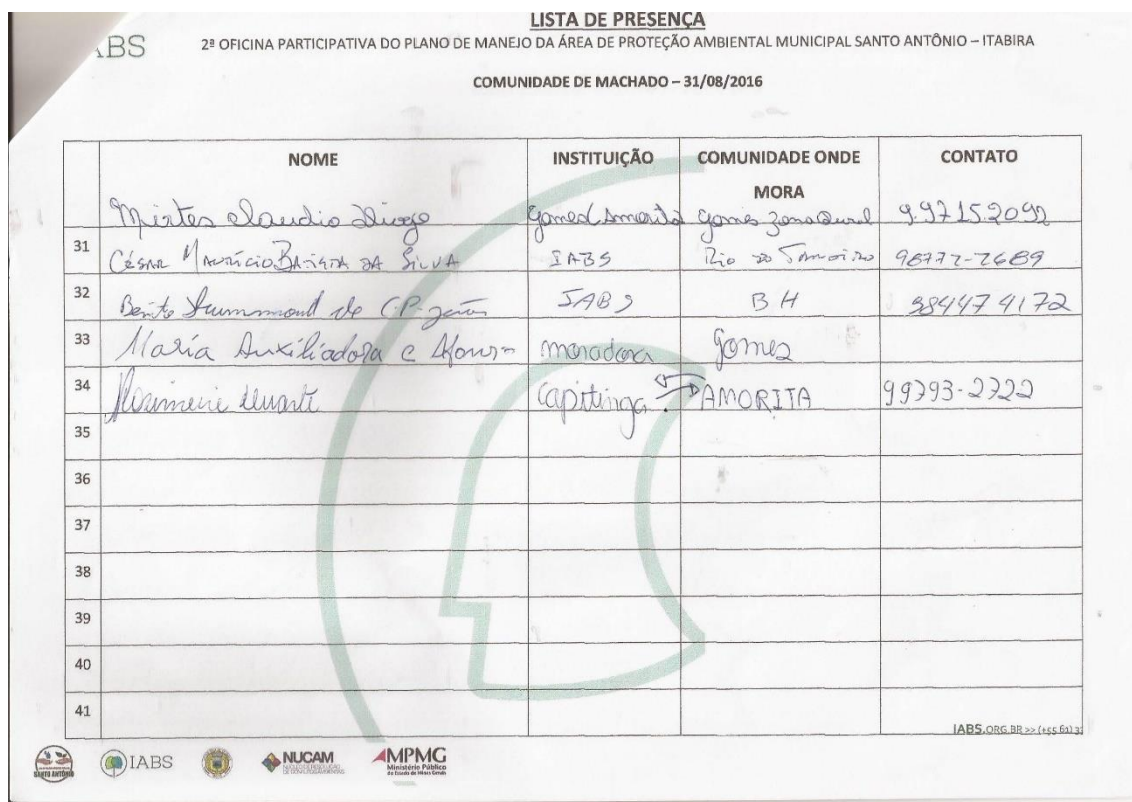 LISTA DE PRESENÇA
ABS
2ª OFICINA PARTICIPATIVA DO PLANO DE MANEJO DA ÁREA DE PROTEÇÃO AMBIENTAL MUNICIPAL SANTO ANTÔNIO – ITABIRA
COMUNIDADE DE MACHADO – 31/08/2016
NOME INSTITUIÇÃO COMUNIDADE ONDE MORA CONTATO
Mirtes Claudio Diogo Gomes Zona Rural 9.9715.2092
31 César Maurício Batista da Silva IABS Rio de 98772-7689
32 Benito Drummond de C.P. IABS BH 984474172
33 Maria Auxiliadora e Afonso moradora Gomes
34 Rosimeire Duarte Capitinga AMORITA 99793-2722
35
36
37
38
39
40
41
IABS.ORG.BR >> (+55 61) 33
SANTO ANTÔNIO
IABS
NUCAM
MPMG
Ministério Público
do Estado de Minas Gerais